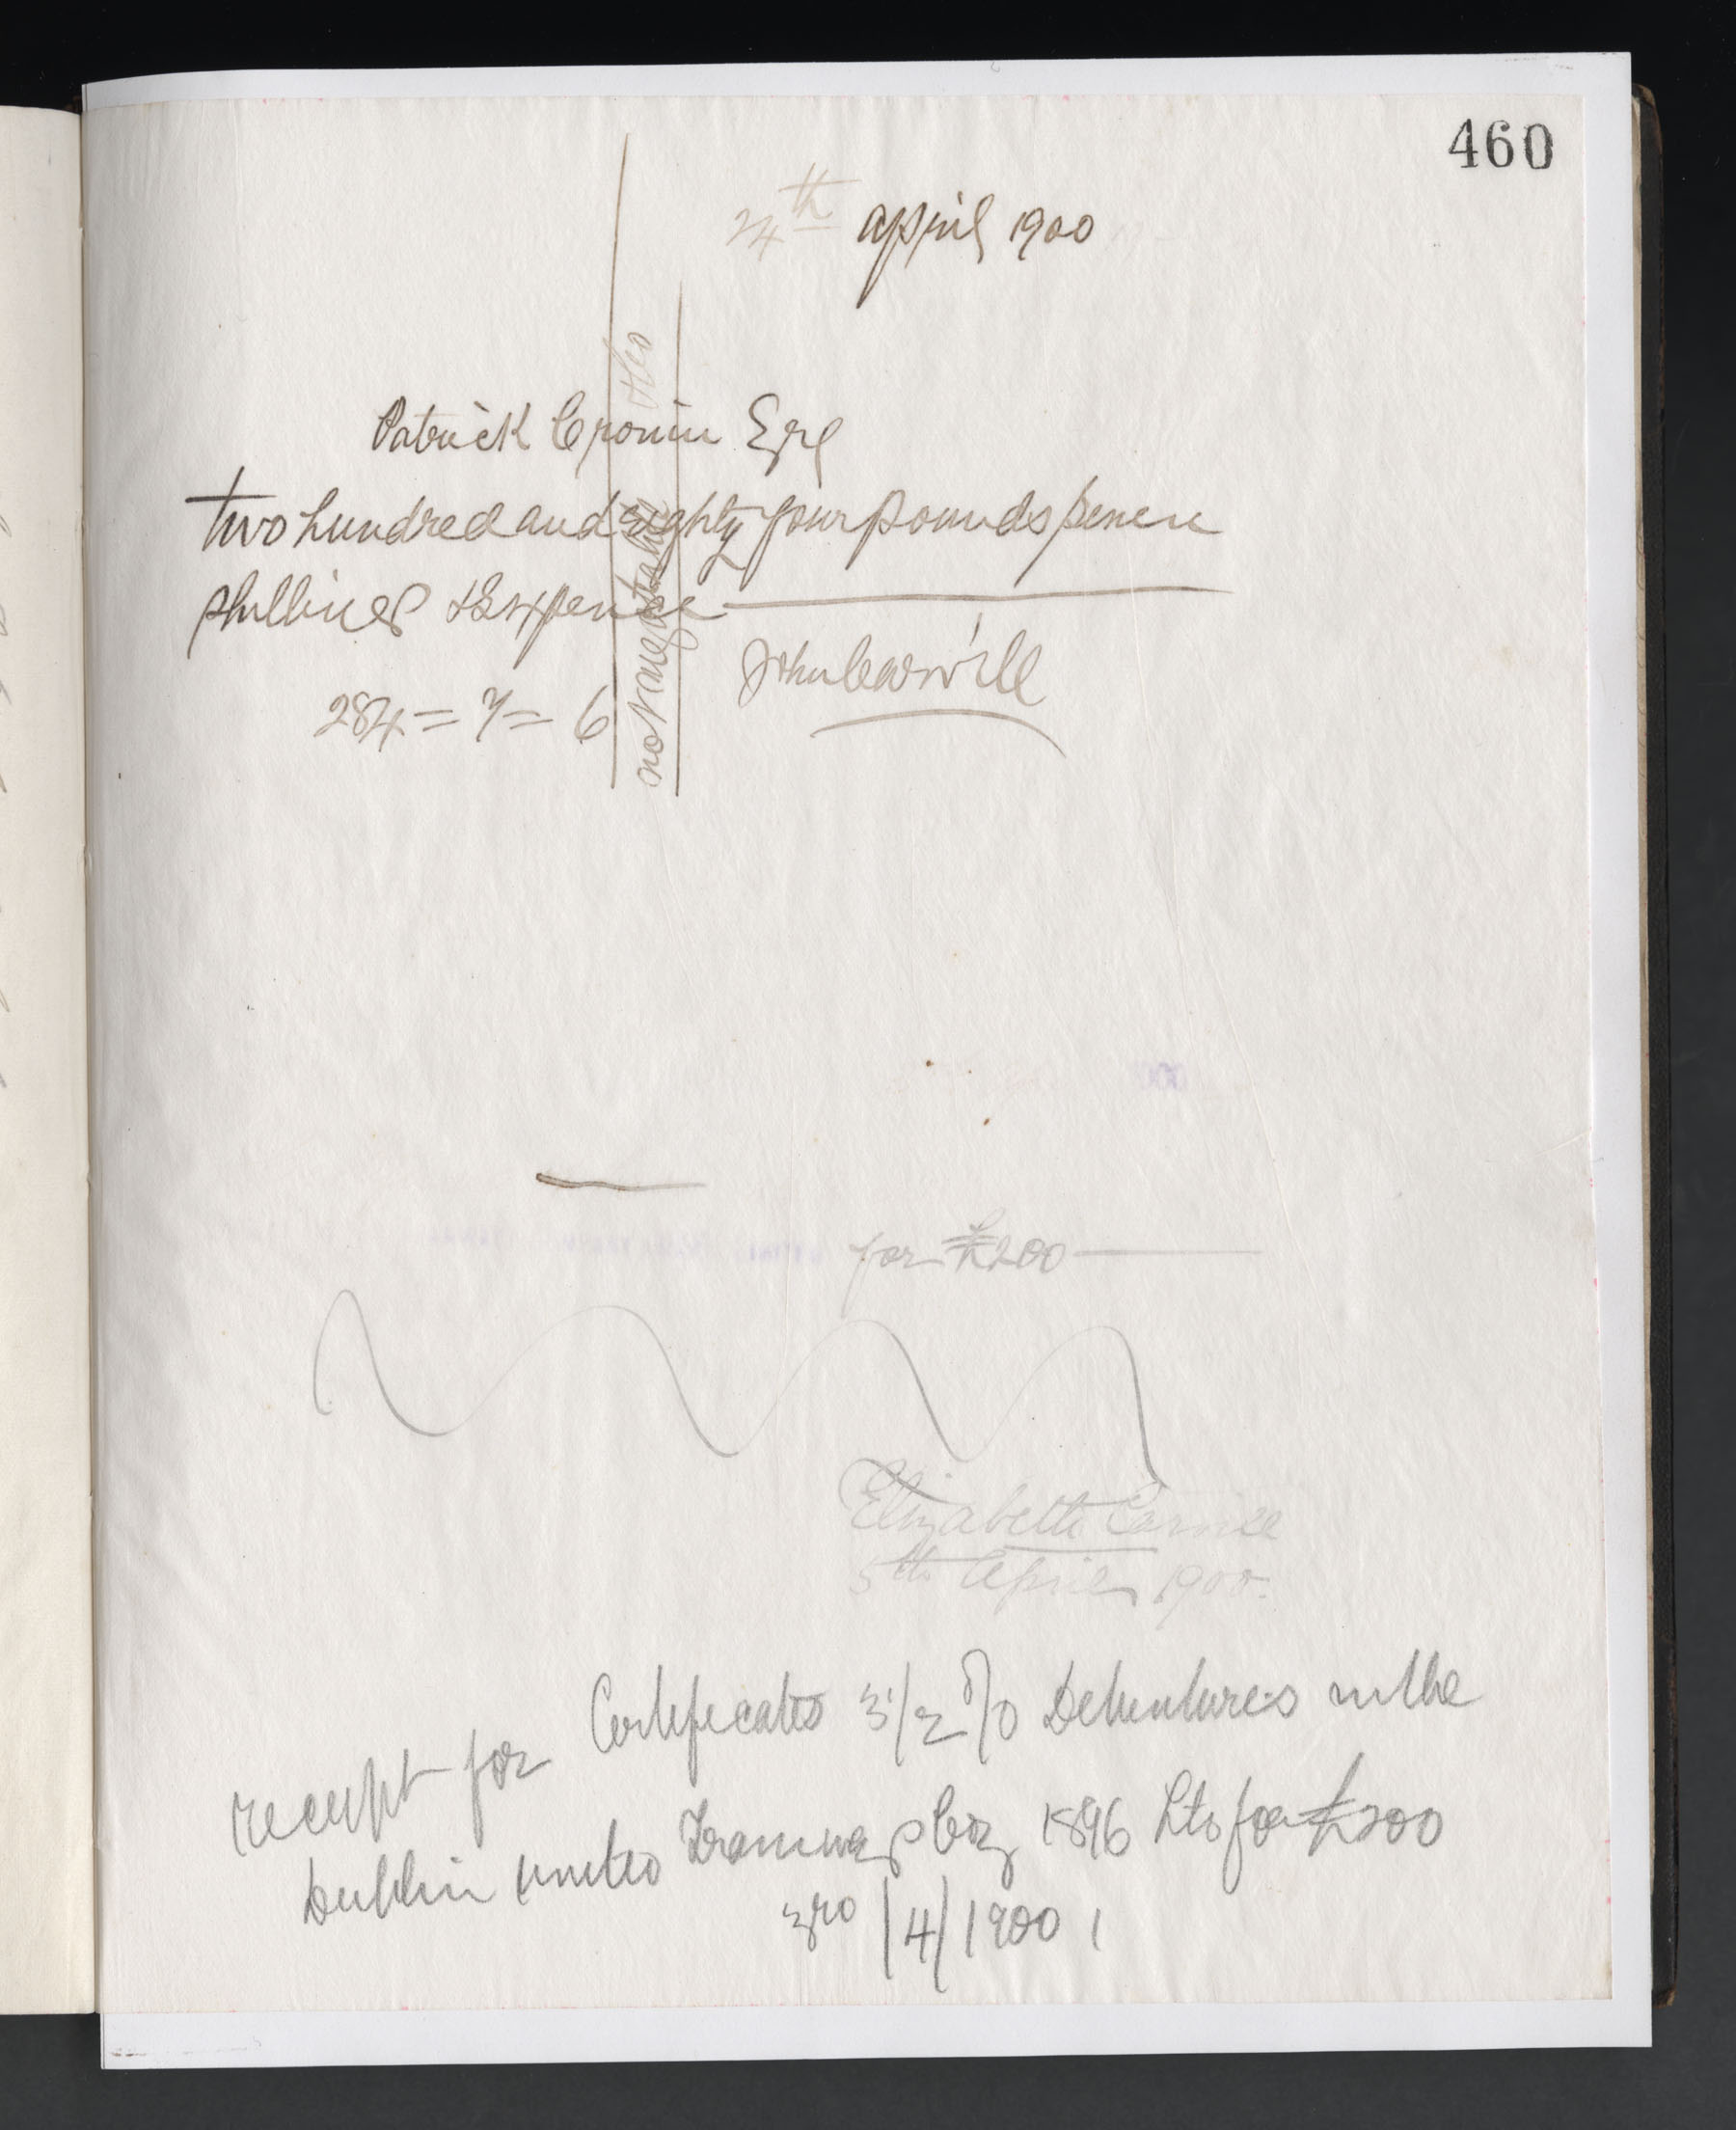 460
24th April 1900
Patrick Cronin Esq
two hundred and Eighty four pounds seven
shillings & Sixpence
284 = 7 = 6
not negotiable
for £200
Elizabeth
5th April 1900.
receipt for Certificates 3 1/2 % Debentures in the
Dublin United Tramways Coy 1896 Ltd for £200
3rd /4/ 1900